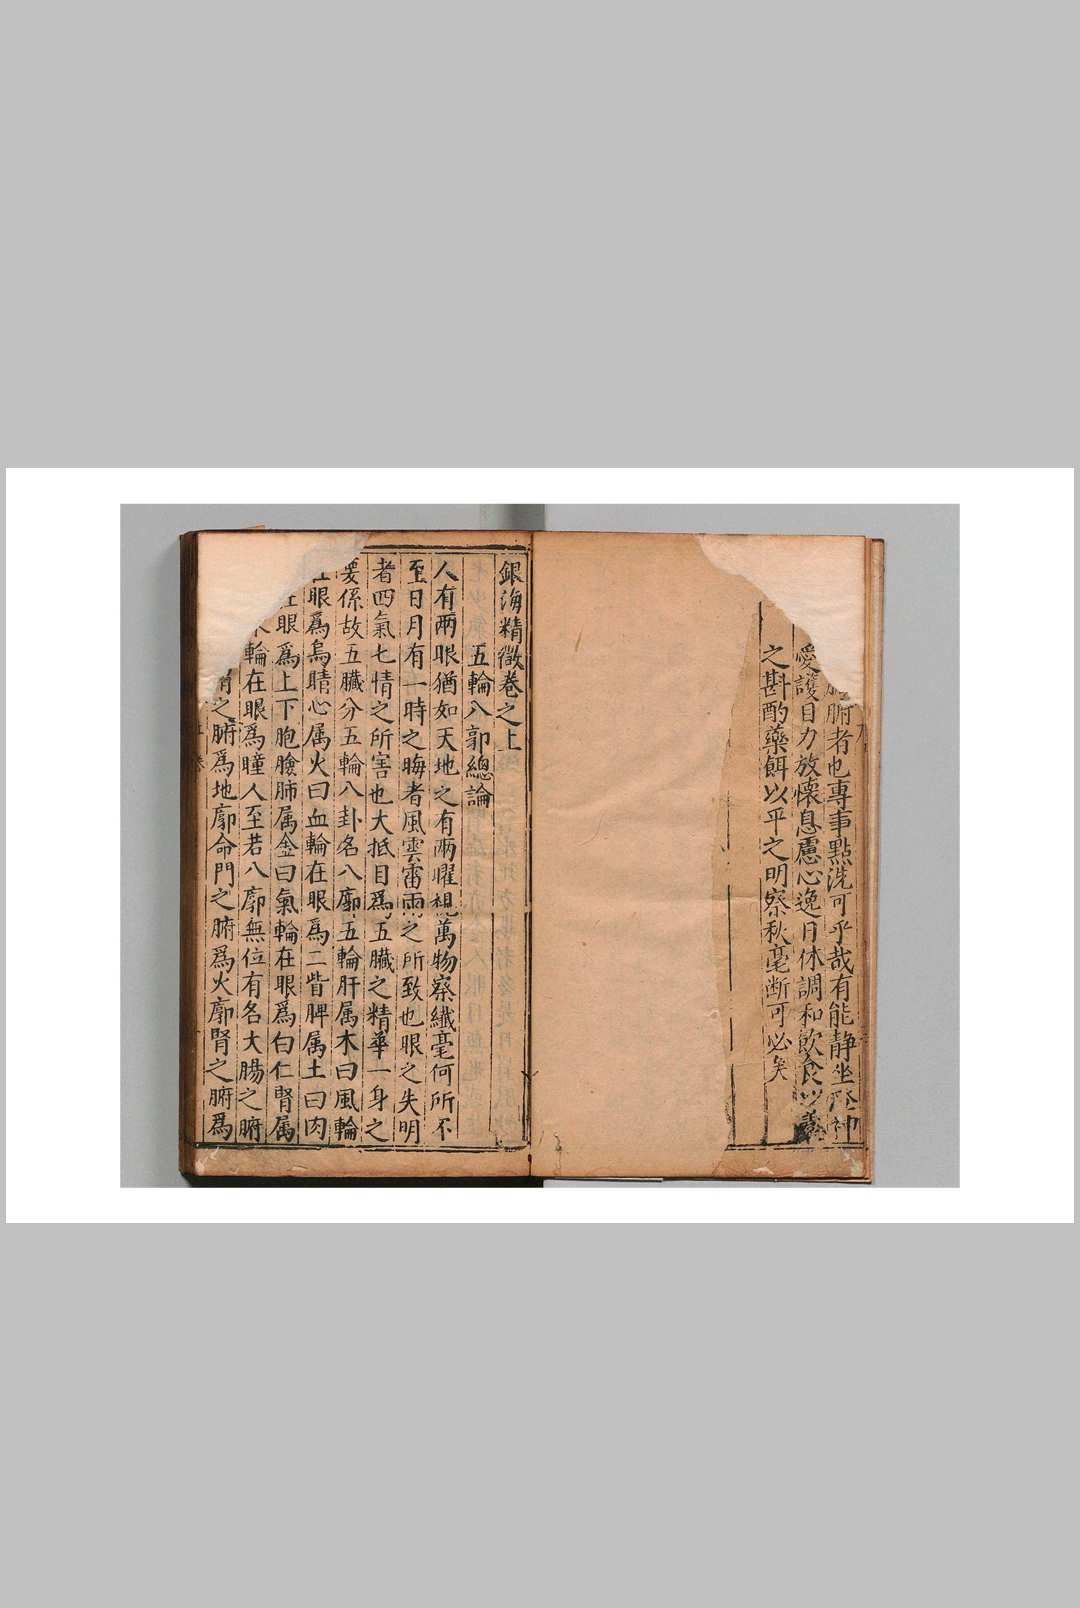 腑者也專事點洗可乎哉有能静坐澄神
愛護目力放懷息慮心逸目休調和飲食以養
之斟酌藥餌以平之明察秋毫断可必矣
銀海精微卷之上
五輪八郭總論
人有兩眼猶如天地之有兩曜視萬物察纖毫何所不
至日月有一時之晦者風雲雷雨之所致也眼之失明
者四氣七情之所害也大抵目為五臟之精華一身之
要係故五臟分五輪八卦名八廓五輪肝属木曰風輪
在眼爲烏睛心属火曰血輪在眼爲二眥脾属土曰肉
在眼爲上下胞瞼肺属金曰氣輪在眼爲白仁腎属
輪在眼爲瞳人至若八廓無位有名大腸之腑
之腑爲地廓命門之腑爲火廓腎之腑爲